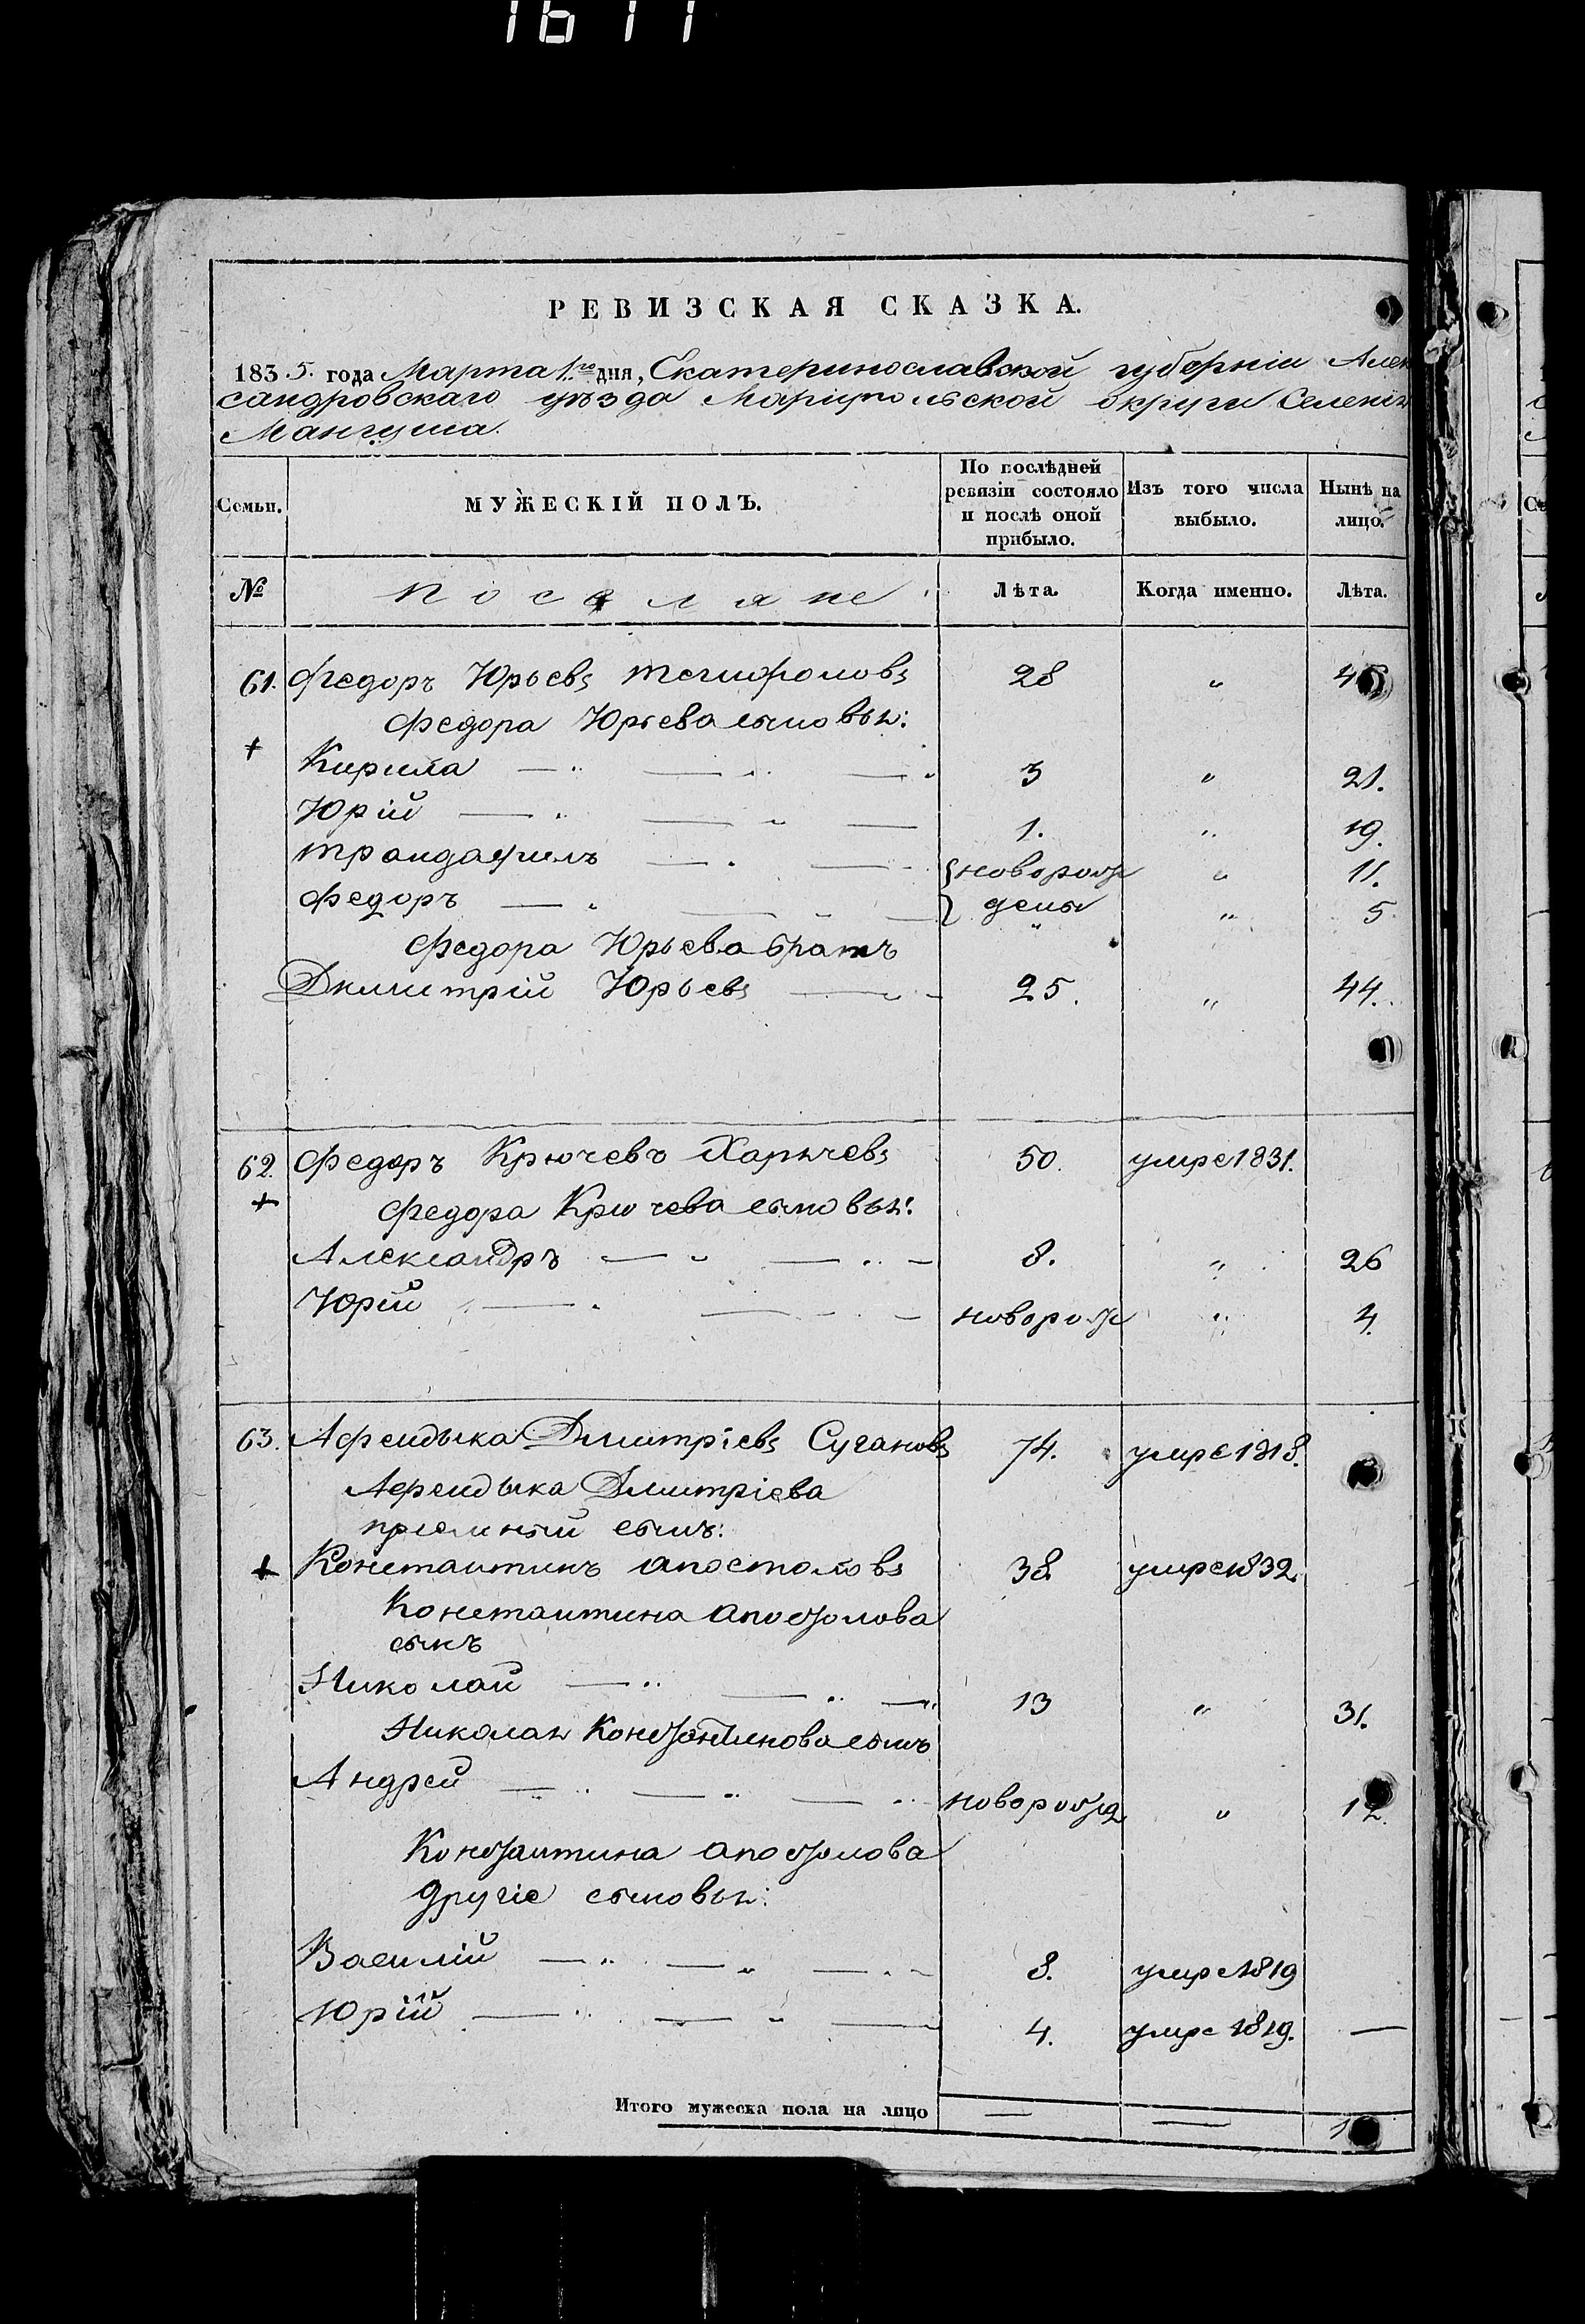 1611
РЕВИЗСКАЯ СКАЗКА.
183 5. года Марта 1го дня, Екатеринославской губерніи Алек
сандровскаго уѣзда Маріупольской округи Селенія
Мангуша.
Семьи.
МУЖЕСКІЙ ПОЛЪ.
По послѣдней ревизіи состояло и послѣ оной прибыло.
Изъ того числа выбыло.
Нынѣ на лицо.
№ поселяне Лѣта. Когда именно. Лѣта.
61. Федоръ Юрьевъ 28 "
Федора Юрьева сыновьи:
+
Кирила — " — " — " 3 " 21.
Юрій — " — " — 1. " 19.
Трандафилъ — " — новорож " 11.
Федоръ — " — " — дены " 5
Федора Юрьева братъ
Дмитрій Юрьевъ — " 25. " 44.
62. Федоръ Крючевъ Харычевъ 50. умре 1831.
+ Федора Крючева сыновьи:
Александръ — " — " — 8. " 26
Юрій — " — " — новорож " 4.
63. Афендыка Димитріевъ Сугановъ 74. умре 1818.
Афендыка Дмитріева
пріемный сынъ:
+ Константинъ апостоловъ 38 умре 1832
Константина апостолова
сынъ
Николай — " — " — " 13 " 31.
Николая Константинова сынъ
Андрей — " — " — " новорожд " 12.
Константина апостолова
другіе сыновьи:
Василій — " — " — " — 8. умре 1819
Юрій — " — " — 4. умре 1819. —
Итого мужеска пола на лицо — —